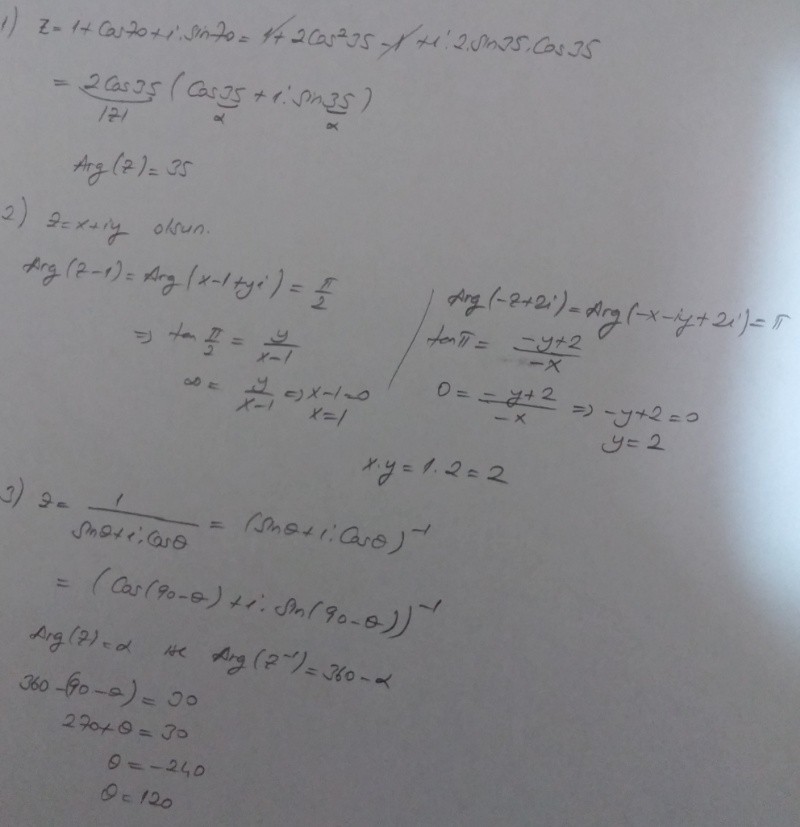 1) z = 1 + Cos70 + i.sin70 = 1 + 2Cos²35 - 1 + i.2.sin35.Cos35
= 2Cos35 (Cos35 + i.sin35)
|z| α α
Arg(z) = 35
2) z = x + iy olsun.
Arg(z-1) = Arg(x-1+yi) = π/2
=> tan π/2 = y/(x-1)
∞ = y/(x-1) => x-1=0
x=1
Arg(-z+2i) = Arg(-x-iy+2i) = π
tanπ = (-y+2)/(-x)
0 = (-y+2)/(-x) => -y+2=0
y=2
x.y = 1.2 = 2
3) z = 1/(sinθ+i.Cosθ) = (sinθ+i.Cosθ)⁻¹
= (Cos(90-θ) + i.sin(90-θ))⁻¹
Arg(z) = α ise Arg(z⁻¹) = 360-α
360-(90-θ) = 30
270+θ = 30
θ = -240
θ = 120